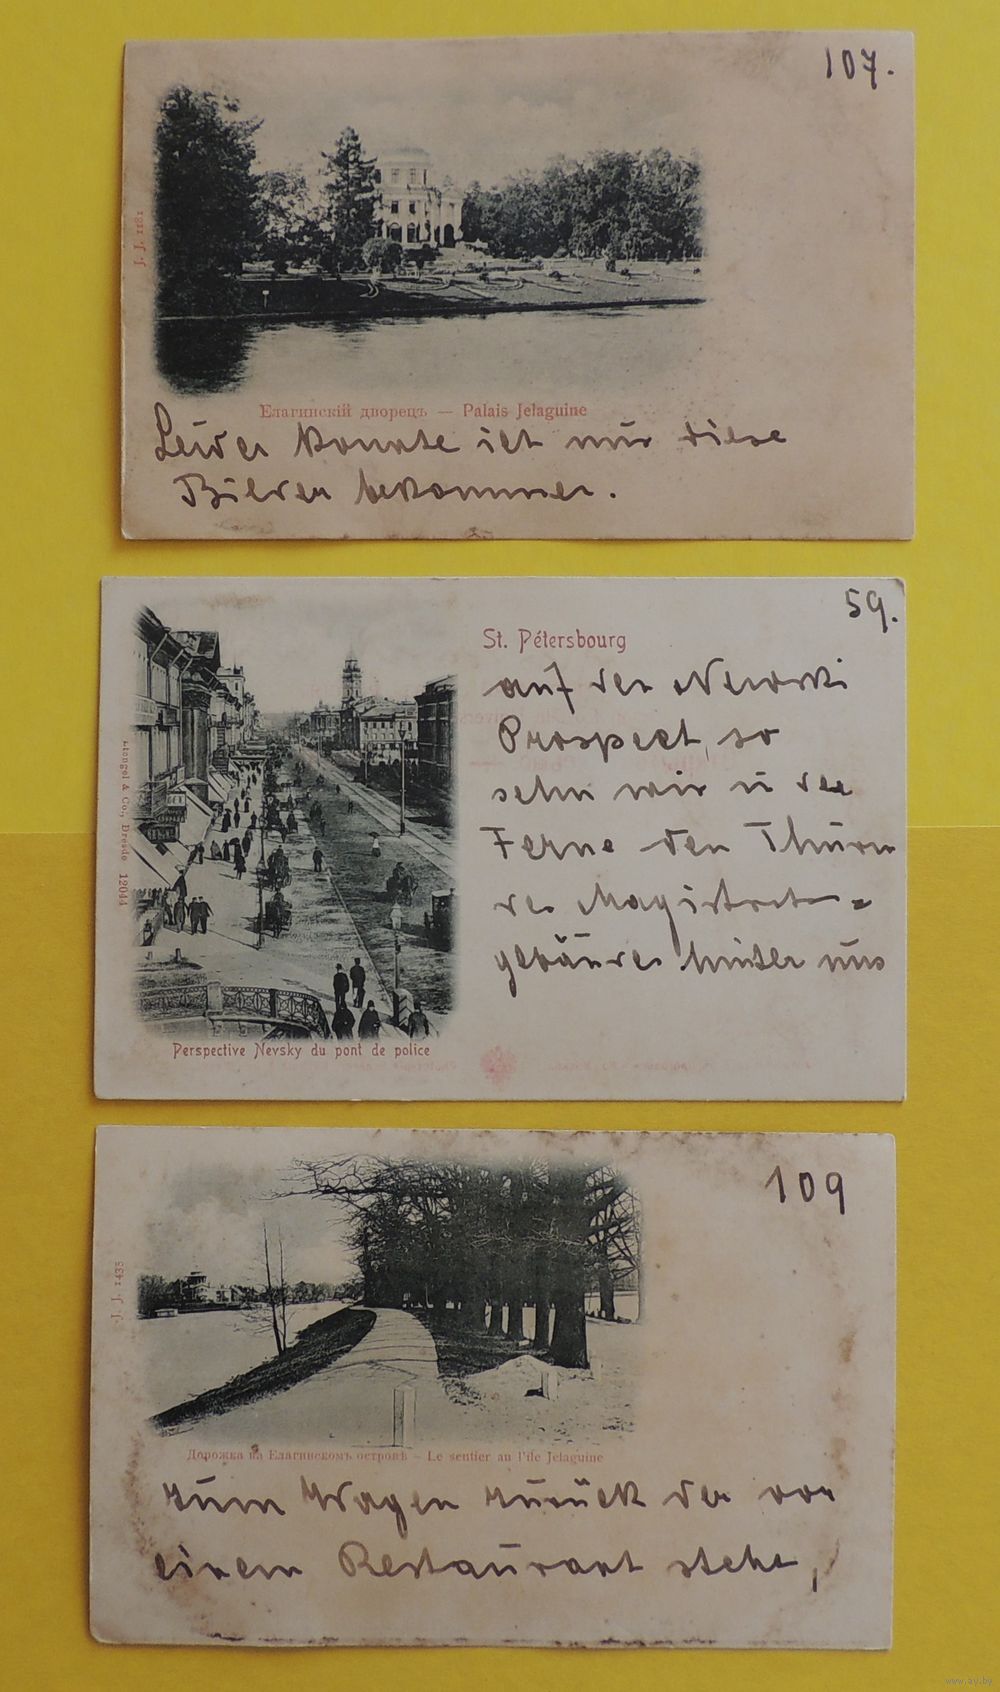 107.
J. J. 1181
Елагинскій дворецъ — Palais Jelaguine
Leider konnte ich nur diese
Bilder bekommen.
59.
St. Pétersbourg
auf der Newski
Prospect, so
sehn wir in der
Ferne den Thurm
des Magistrats=
gebäudes hinter uns
Stengel & Co., Dresde 12044
Perspective Nevsky du pont de police
109
J. J. 1435
Дорожка на Елагинскомъ островѣ – Le sentier au l'île Jelaguine
zum Wagen zurück der vor
einem Restaurant steht,
www.ay.by